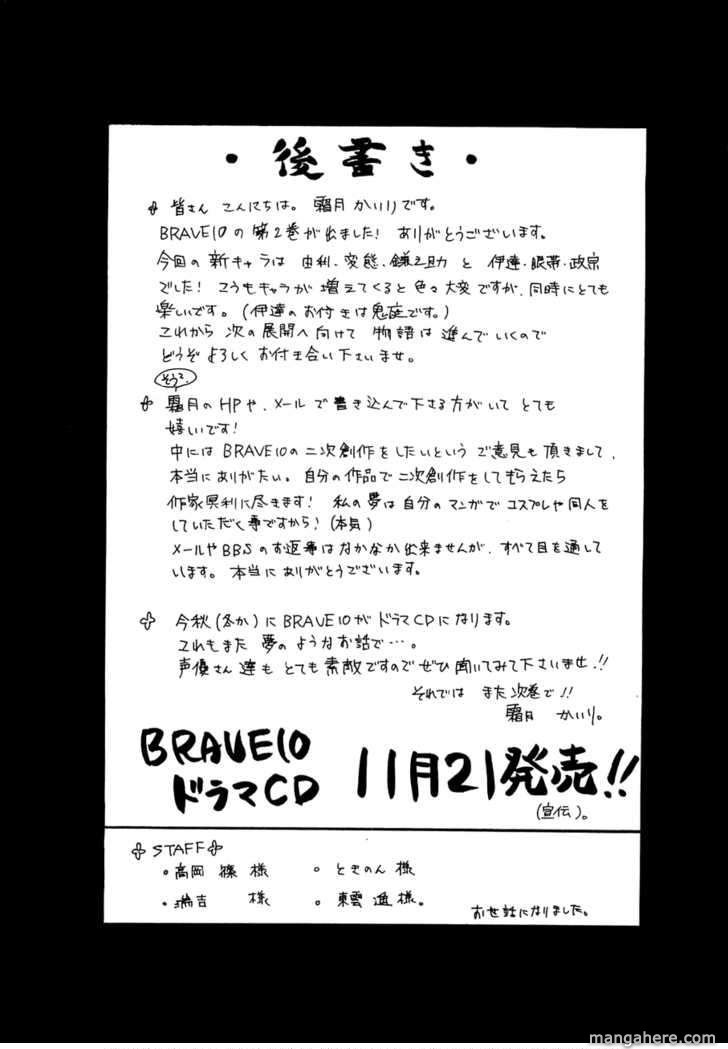 ・後書き・
皆さん こんにちは。 霜月 かいりです。
BRAVE10の第2巻が出ました! ありがとうございます。
今回の新キャラは 由利・変態・鎌之助 と 伊達・眼帯・政宗
でした! こうもキャラが 増えてくると色々大変ですが、同時にとても
楽しいです。(伊達のお付きは鬼庭です。)
これから 次の展開へ向けて 物語は 進んでいくので
どうぞ よろしく お付き合い下さいませ。
霜月のHPや、メール で書き込んで下さる方がいて とても
嬉いです!
中には BRAVE10の二次創作をしたいという ご意見も 頂きまして、
本当にありがたい。自分の作品で二次創作をしてもらえたら
作家冥利に尽きます! 私の夢は自分のマンガで コスプレや同人を
していただく事ですから!(本気)
メールやBBSのお返事はなかなか出来ませんが、すべて目を通して
います。本当にありがとうございます。
今秋(冬か)にBRAVE10がドラマCDになります。
これもまた 夢のようなお話で…。
声優さん達も とても素敵ですのでぜひ聞いてみて下さいませ!!
それでは また次巻で!!
霜月 かいり。
BRAVE10
ドラマCD 11月21発売!!
(宣伝)。
STAFF
・高岡 様 。ときのん 様
・瑞吉 様 。東雲 遥 様。
お世話になりました。
mangahere.com